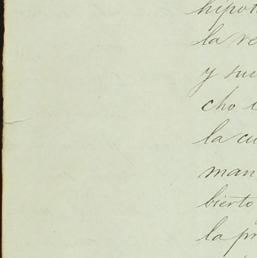 hipot
la re
y su
cho
la cu
man
bierto
la pr